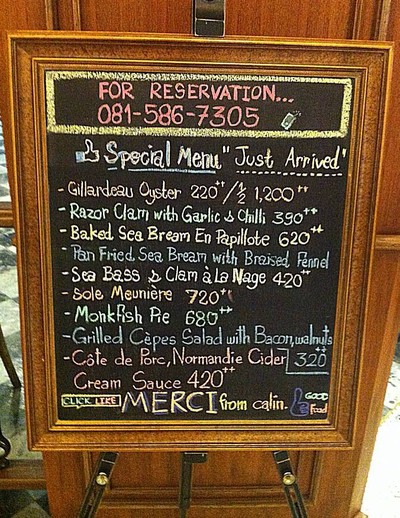 FOR RESERVATION...
081-586-7305
Special Menu "Just Arrived"
- Gillardeau Oyster 220++/½ 1,200++
- Razor Clam with Garlic & Chilli 390++
- Baked Sea Bream En Papillote 620++
- Pan Fried Sea Bream with Braised Fennel
- Sea Bass & Clam à La Nage 420++
- Sole Meunière 720++
- Monkfish Pie 680++
- Grilled Cèpes Salad with Bacon, walnuts
- Côte de Porc, Normandie Cider 320++
Cream Sauce 420++
CLICK LIKE MERCI from calin. GOOD
Food